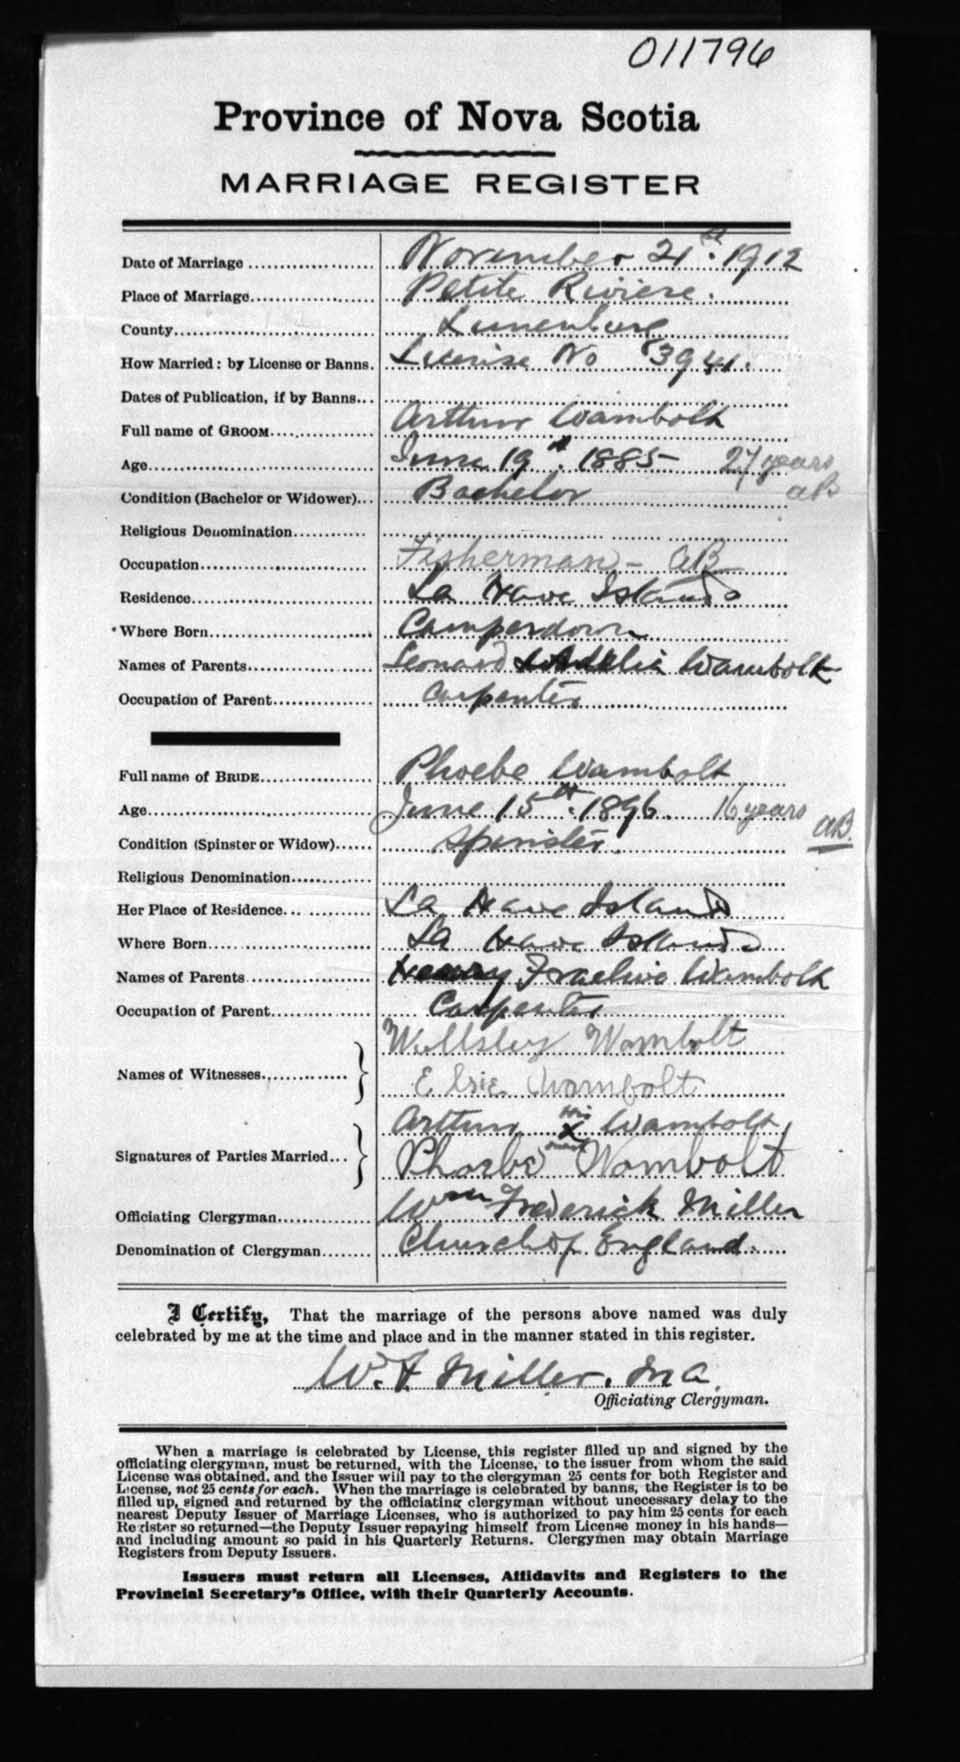 011796
Province of Nova Scotia
MARRIAGE REGISTER
Date of Marriage November 21st. 1912
Place of Marriage Petite Riviere.
County Lunenburg
How Married: by License or Banns. License No 3941.
Dates of Publication, if by Banns
Full name of GROOM Arthur Wambolt
Age June 19th. 1885 27 years
aB
Condition (Bachelor or Widower) Bachelor
Religious Denomination
Occupation Fisherman - aB
Residence La Have Islands
Where Born Camperdown
Names of Parents Leonard Wambolt
Occupation of Parent Carpenter
Full name of BRIDE Phoebe Wambolt
Age June 15th. 1896. 16 years
aB.
Condition (Spinster or Widow) Spinster.
Religious Denomination
Her Place of Residence La Have Islands
Where Born La Have Islands
Names of Parents Henry Wambolt
Occupation of Parent Carpenter
Wellsley Wambolt
Names of Witnesses
Elsie Wambolt
Arthur his X Wambolt
Signatures of Parties Married mark
Phoebe Wombolt
Officiating Clergyman Wm Frederick Miller
Denomination of Clergyman Church of England.
I Certify, That the marriage of the persons above named was duly
celebrated by me at the time and place and in the manner stated in this register.
W. F. Miller. M a.
Officiating Clergyman.
When a marriage is celebrated by License, this register filled up and signed by the
officiating clergyman, must be returned, with the License, to the issuer from whom the said
License was obtained, and the Issuer will pay to the clergyman 25 cents for both Register and
License, not 25 cents for each. When the marriage is celebrated by banns, the Register is to be
filled up, signed and returned by the officiating clergyman without unnecessary delay to the
nearest Deputy Issuer of Marriage Licenses, who is authorized to pay him 25 cents for each
Register so returned—the Deputy Issuer repaying himself from License money in his hands—
and including amount so paid in his Quarterly Returns. Clergymen may obtain Marriage
Registers from Deputy Issuers.
Issuers must return all Licenses, Affidavits and Registers to the
Provincial Secretary's Office, with their Quarterly Accounts.